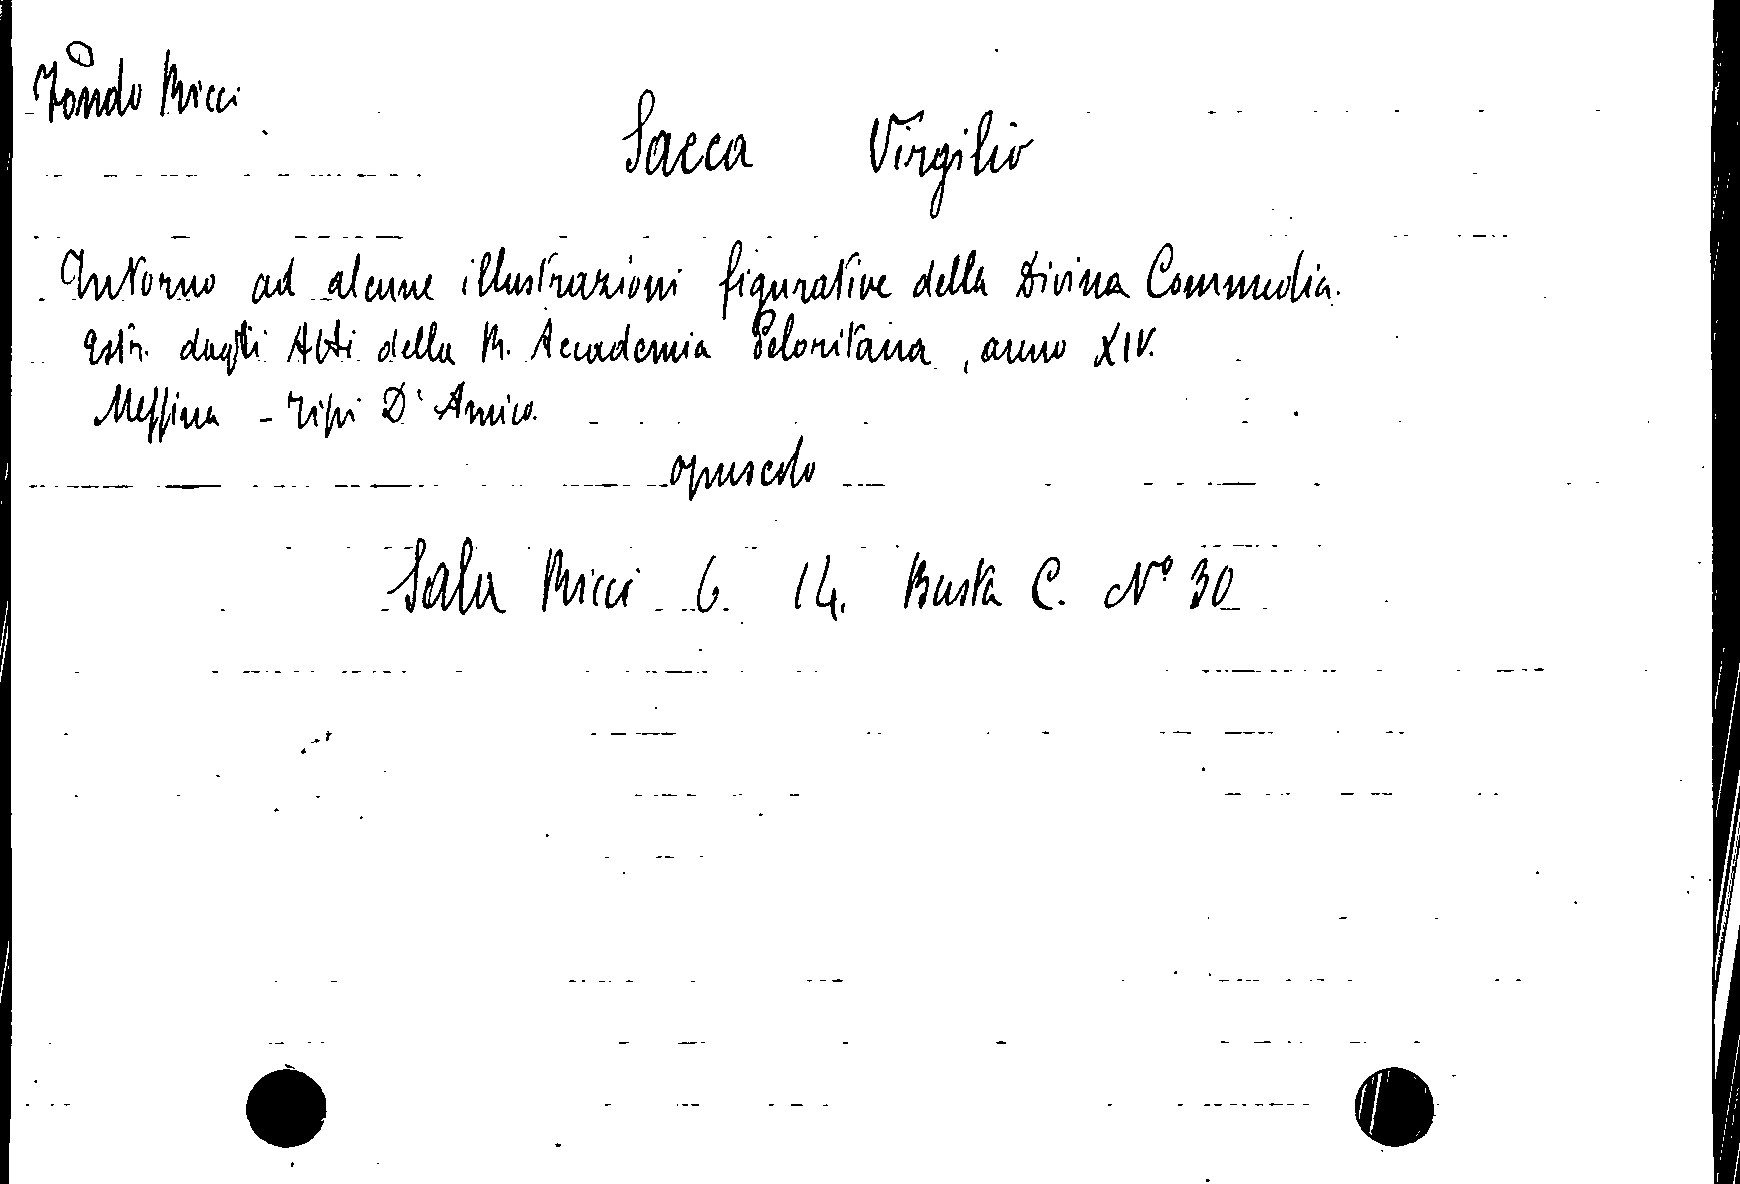 Fondo Ricci
Sacca Virgilio
Intorno ad alcune illustrazioni figurative della Divina Commedia.
Estr. dagli Atti della R. Accademia Peloritana, anno XIV.
Messina - Tipi D'Amico.
opuscolo
Sala Ricci 6. 14. Busta C. Nº 30